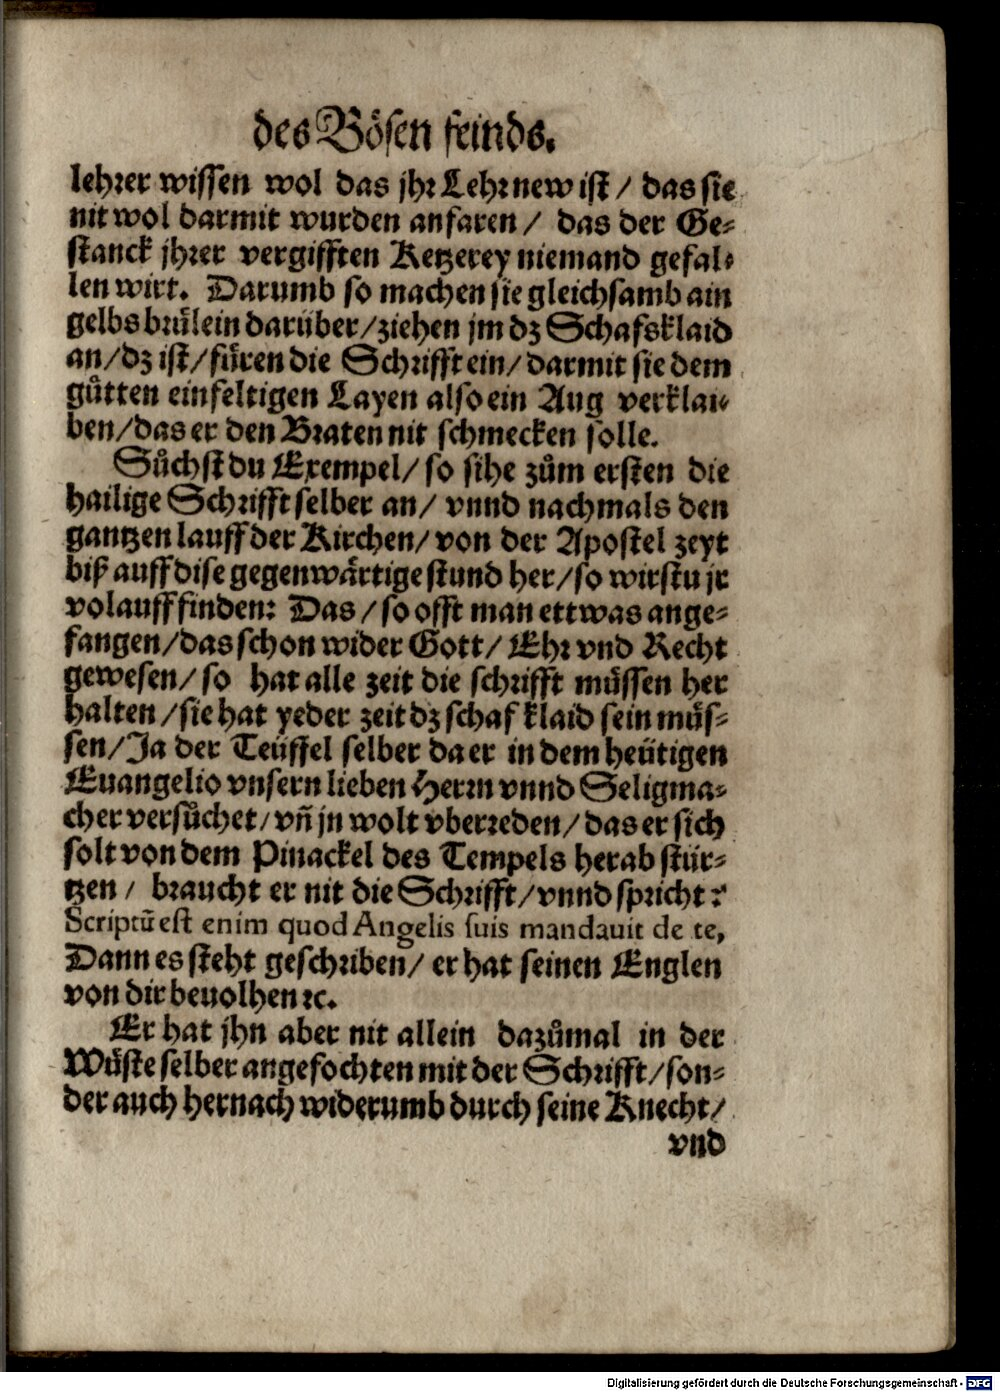 des Bösen feinds.
lehrer wissen wol das jhr Lehr new ist / das sie
nit wol darmit wurden anfaren / das der Ge⸗
stanck jhrer vergifften Ketzerey niemand gefal⸗
len wirt. Darumb so machen sie gleichsamb ain
gelbs brülein darüber / ziehen jm dz Schafsklaid
an / dz ist / füren die Schrifft ein / darmit sie dem
gůtten einfeltigen Layen also ein Aug verklai⸗
ben / das er den Braten nit schmecken solle.
Sůchst du Exempel / so sihe zům ersten die
hailige Schrifft selber an / vnnd nachmals den
gantzen lauff der Kirchen / von der Apostel zeyt
biß auff dise gegenwärtige stund her / so wirstu jr
volauff finden: Das / so offt man ettwas ange⸗
fangen / das schon wider Gott / Ehr vnd Recht
gewesen / so hat alle zeit die schrifft müssen her
halten / sie hat yeder zeit dz schaf klaid sein müs⸗
sen / Ja der Teüffel selber da er in dem heütigen
Euangelio vnsern lieben Herrn vnnd Seligma⸗
cher versůchet / vñ jn wolt vberreden / das er sich
solt von dem Pinackel des Tempels herab stür⸗
tzen / braucht er nit die Schrifft / vnnd spricht:
Scriptū est enim quod Angelis suis mandavit de te,
Dann es steht geschriben / er hat seinen Englen
von dir beuolhen ꝛc.
Er hat jhn aber nit allein dazůmal in der
Wüste selber angefochten mit der Schrifft / son⸗
der auch hernach widerumb durch seine Knecht /
vnd
Digitalisierung gefördert durch die Deutsche Forschungsgemeinschaft - DFG